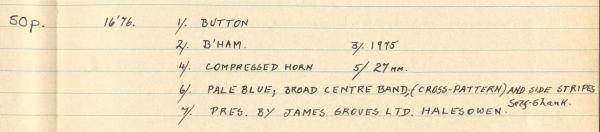 50p. 16'76. 1/. BUTTON
2/. B'HAM. 3/. 1975
4/. COMPRESSED HORN 5/ 27mm.
6/. PALE BLUE, BROAD CENTRE BAND, (CROSS-PATTERN) AND SIDE STRIPES
Self-Shank.
7/. PRES. BY JAMES GROVES LTD. HALESOWEN.